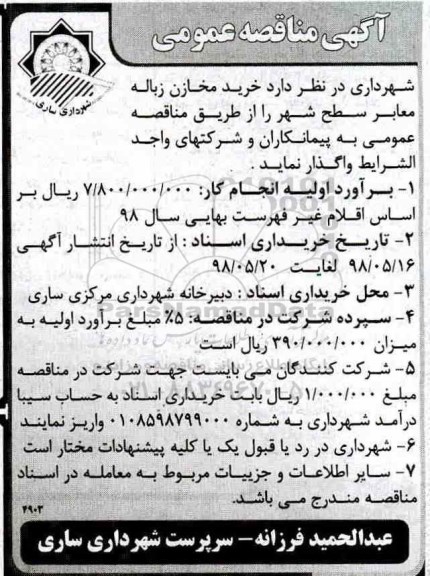 آگهی مناقصه عمومی
شهرداری ساری
شهرداری در نظر دارد خرید مخازن زباله
معابر سطح شهر را از طریق مناقصه
عمومی به پیمانکاران و شرکتهای واجد
الشرایط واگذار نماید.
۱- برآورد اولیه انجام کار: ۷/۸۰۰/۰۰۰/۰۰۰ ریال بر
اساس اقلام غیر فهرست بهایی سال ۹۸
۲- تاریخ خریداری اسناد: از تاریخ انتشار آگهی
۹۸/۰۵/۱۶ لغایت ۹۸/۰۵/۲۰
۳- محل خریداری اسناد: دبیرخانه شهرداری مرکزی ساری
۴- سپرده شرکت در مناقصه: ۵٪ مبلغ برآورد اولیه به
میزان ۳۹۰/۰۰۰/۰۰۰ ریال است
۵- شرکت کنندگان می بایست جهت شرکت در مناقصه
مبلغ ۱/۰۰۰/۰۰۰ ریال بابت خریداری اسناد به حساب سیبا
درآمد شهرداری به شماره ۰۱۰۸۵۹۸۷۹۹۰۰۰ واریز نمایند
۶- شهرداری در رد یا قبول یک یا کلیه پیشنهادات مختار است
۷- سایر اطلاعات و جزییات مربوط به معامله در اسناد
مناقصه مندرج می باشد.
۴۹۰۳
عبدالحمید فرزانه – سرپرست شهرداری ساری